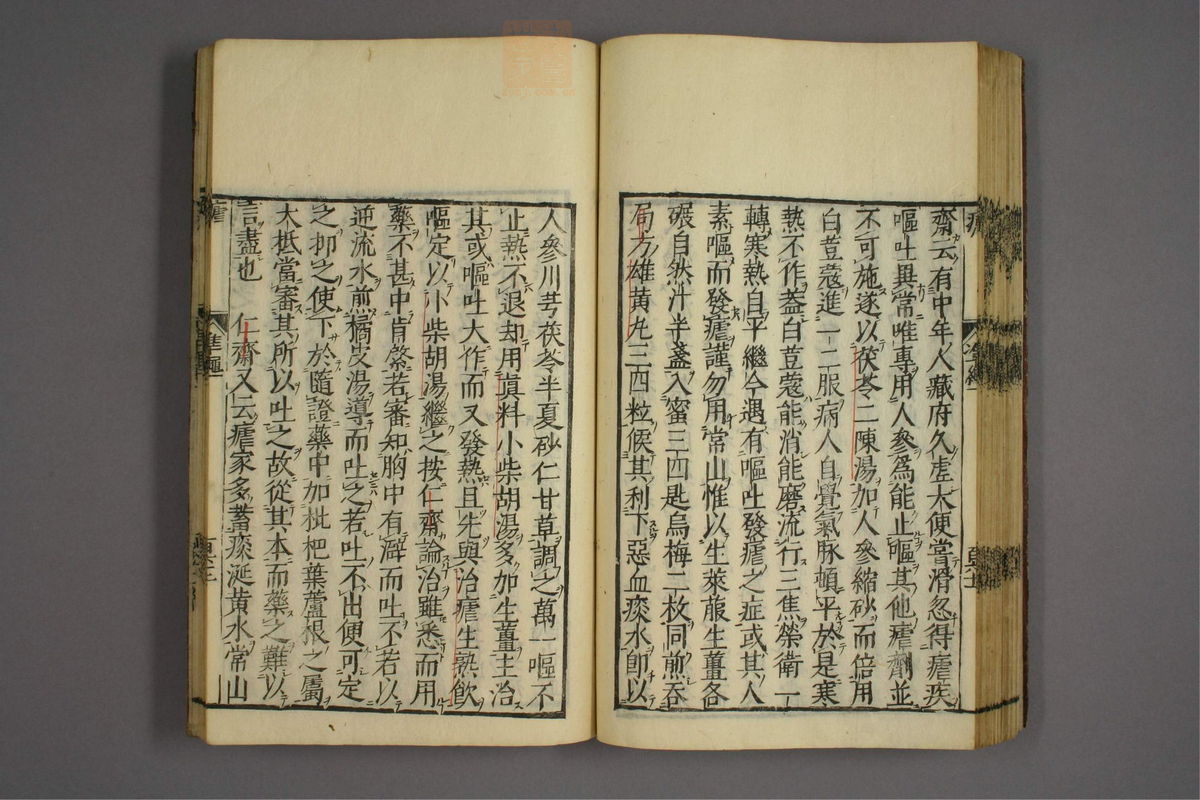 齋云有中年人藏府久虛大便常滑忽得瘧疾
嘔吐異常唯專用人參爲能止嘔其他瘧劑並
不可施遂以茯苓二陳湯加人參縮砂而倍用
白荳蔻進一二服病人自覺氣脉頓平於是寒
熱不作葢白荳蔻能消能磨流行三焦榮衛一
轉寒熱自平繼今遇有嘔吐發瘧之症或其人
素嘔而發瘧謹勿用常山惟以生萊菔生薑各
碾自然汁半盞入蜜三四匙烏梅二枚同煎吞
局方雄黃丸三四粒候其利下惡血痰水卽以
人參川芎茯苓半夏砂仁甘草調之萬一嘔不
止熱不退却用眞料小柴胡湯多加生薑主治
其或嘔吐大作而又發熱且先與治瘧生熟飲
嘔定以小柴胡湯繼之按仁齋論治雖悉而用
藥不甚中肯綮若審知胸中有澼而吐不若以
逆流水煎橘皮湯導而吐之若吐不出便可定
之抑之使下於隨證藥中加枇杷葉蘆根之屬
大抵當審其所以吐之故從其本而藥之難以
言盡也　仁齋又云瘧家多蓄痰涎黃水常山